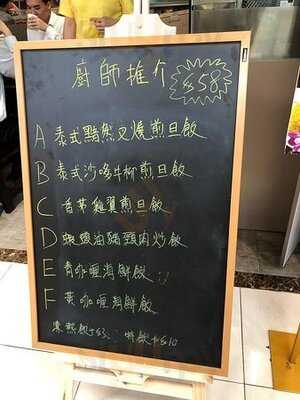 廚師推介 $58
A 泰式豬魚叉燒煎旦飯
B 泰式沙嗲牛柳煎旦飯
C 香茅雞翼煎旦飯
D 蝦醬油豬頸肉炒飯
E 青咖喱海鮮飯
F 黃咖喱海鮮飯
凍熱飲+$5 特飲+$10